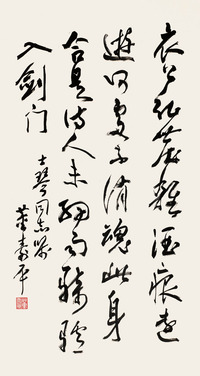 衣上征尘杂酒痕远
游何处不消魂此身
合是诗人未细雨骑驴
入剑门
士琴同志属
董寿平